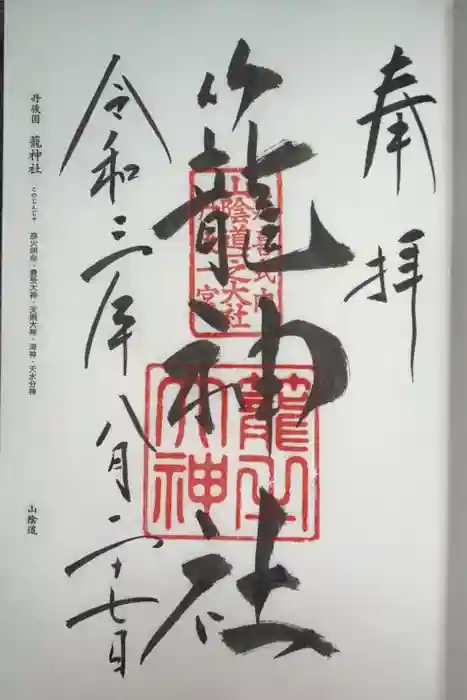 奉拝
籠神社
山陰道之大社
籠之大神
令和三年八月二十七日
丹後國 籠神社 このじんじゃ 彦火明命・豊受大神・天照大神・海神・天水分神
山陰道